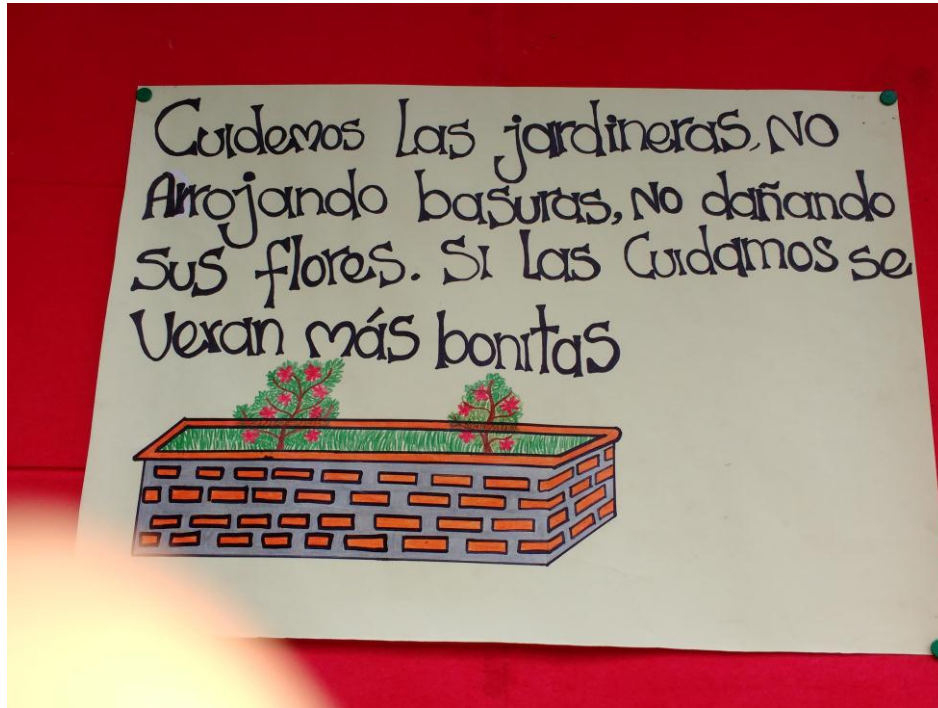 Cuidemos Las jardineras, No
Arrojando basuras, No dañando
sus flores. Si Las Cuidamos se
Veran más bonitas